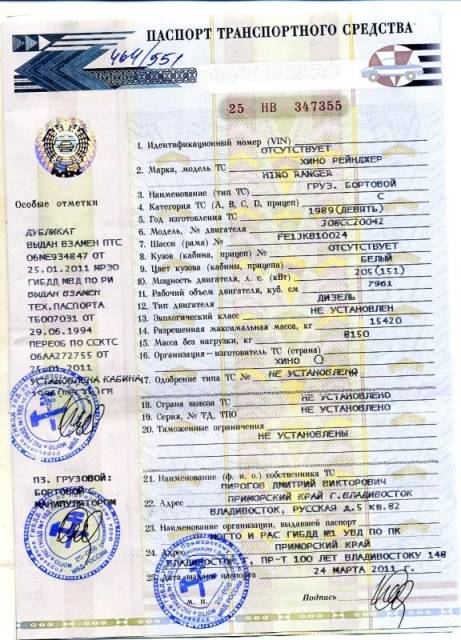 ПАСПОРТ ТРАНСПОРТНОГО СРЕДСТВА
464/551
25 НВ 347355
1. Идентификационный номер (VIN) ОТСУТСТВУЕТ
2. Марка, модель ТС ХИНО РЕЙНДЖЕР
HINO RANGER
3. Наименование (тип ТС) ГРУЗ. БОРТОВОЙ
4. Категория ТС (А, В, С, D, прицеп) С
5. Год изготовления ТС 1989(ДЕВЯТЬ)
6. Модель, № двигателя J08CC20042
7. Шасси (рама) № FE1JKB10024
8. Кузов (кабина, прицеп) № ОТСУТСТВУЕТ
9. Цвет кузова (кабины, прицепа) БЕЛЫЙ
10. Мощность двигателя, л. с. (кВт) 205(151)
11. Рабочий объем двигателя, куб. см 7961
12. Тип двигателя ДИЗЕЛЬ
13. Экологический класс НЕ УСТАНОВЛЕН
14. Разрешенная максимальная масса, кг 15420
15. Масса без нагрузки, кг 8150
16. Организация–изготовитель ТС (страна) ХИНО
17. Одобрение типа ТС № НЕ УСТАНОВЛЕНО
18. Страна вывоза ТС НЕ УСТАНОВЛЕНО
19. Серия, № ТД, ТПО НЕ УСТАНОВЛЕНО
20. Таможенные ограничения
НЕ УСТАНОВЛЕНЫ
21. Наименование (ф. и. о.) собственника ТС
ПИРОГОВ ДМИТРИЙ ВИКТОРОВИЧ
22. Адрес ПРИМОРСКИЙ КРАЙ Г.ВЛАДИВОСТОК
ВЛАДИВОСТОК, РУССКАЯ Д.5 КВ.82
23. Наименование организации, выдавшей паспорт
МОГТО И РАС ГИБДД №1 УВД ПО ПК
24. Адрес ПРИМОРСКИЙ КРАЙ
ВЛАДИВОСТОК, ПР-Т 100 ЛЕТ ВЛАДИВОСТОКУ 148
25. Дата выдачи паспорта 24 МАРТА 2011 г.
М. П. Подпись
Особые отметки
ДУБЛИКАТ
ВЫДАН ВЗАМЕН ПТС
06МЕ934847 ОТ
25.01.2011 МРЭО
ГИБДД МВД ПО РИ
ВЫДАН ВЗАМЕН
ТЕХ.ПАСПОРТА
ТБ007031 ОТ
29.06.1994
ПЕРЕОБ ПО ССКТС
06АА272755 ОТ
25.01.2011
УСТАНОВЛЕНА КАБИНА
ПЗ. ГРУЗОВОЙ:
БОРТОВОЙ
МАНИПУЛЯТОРОМ